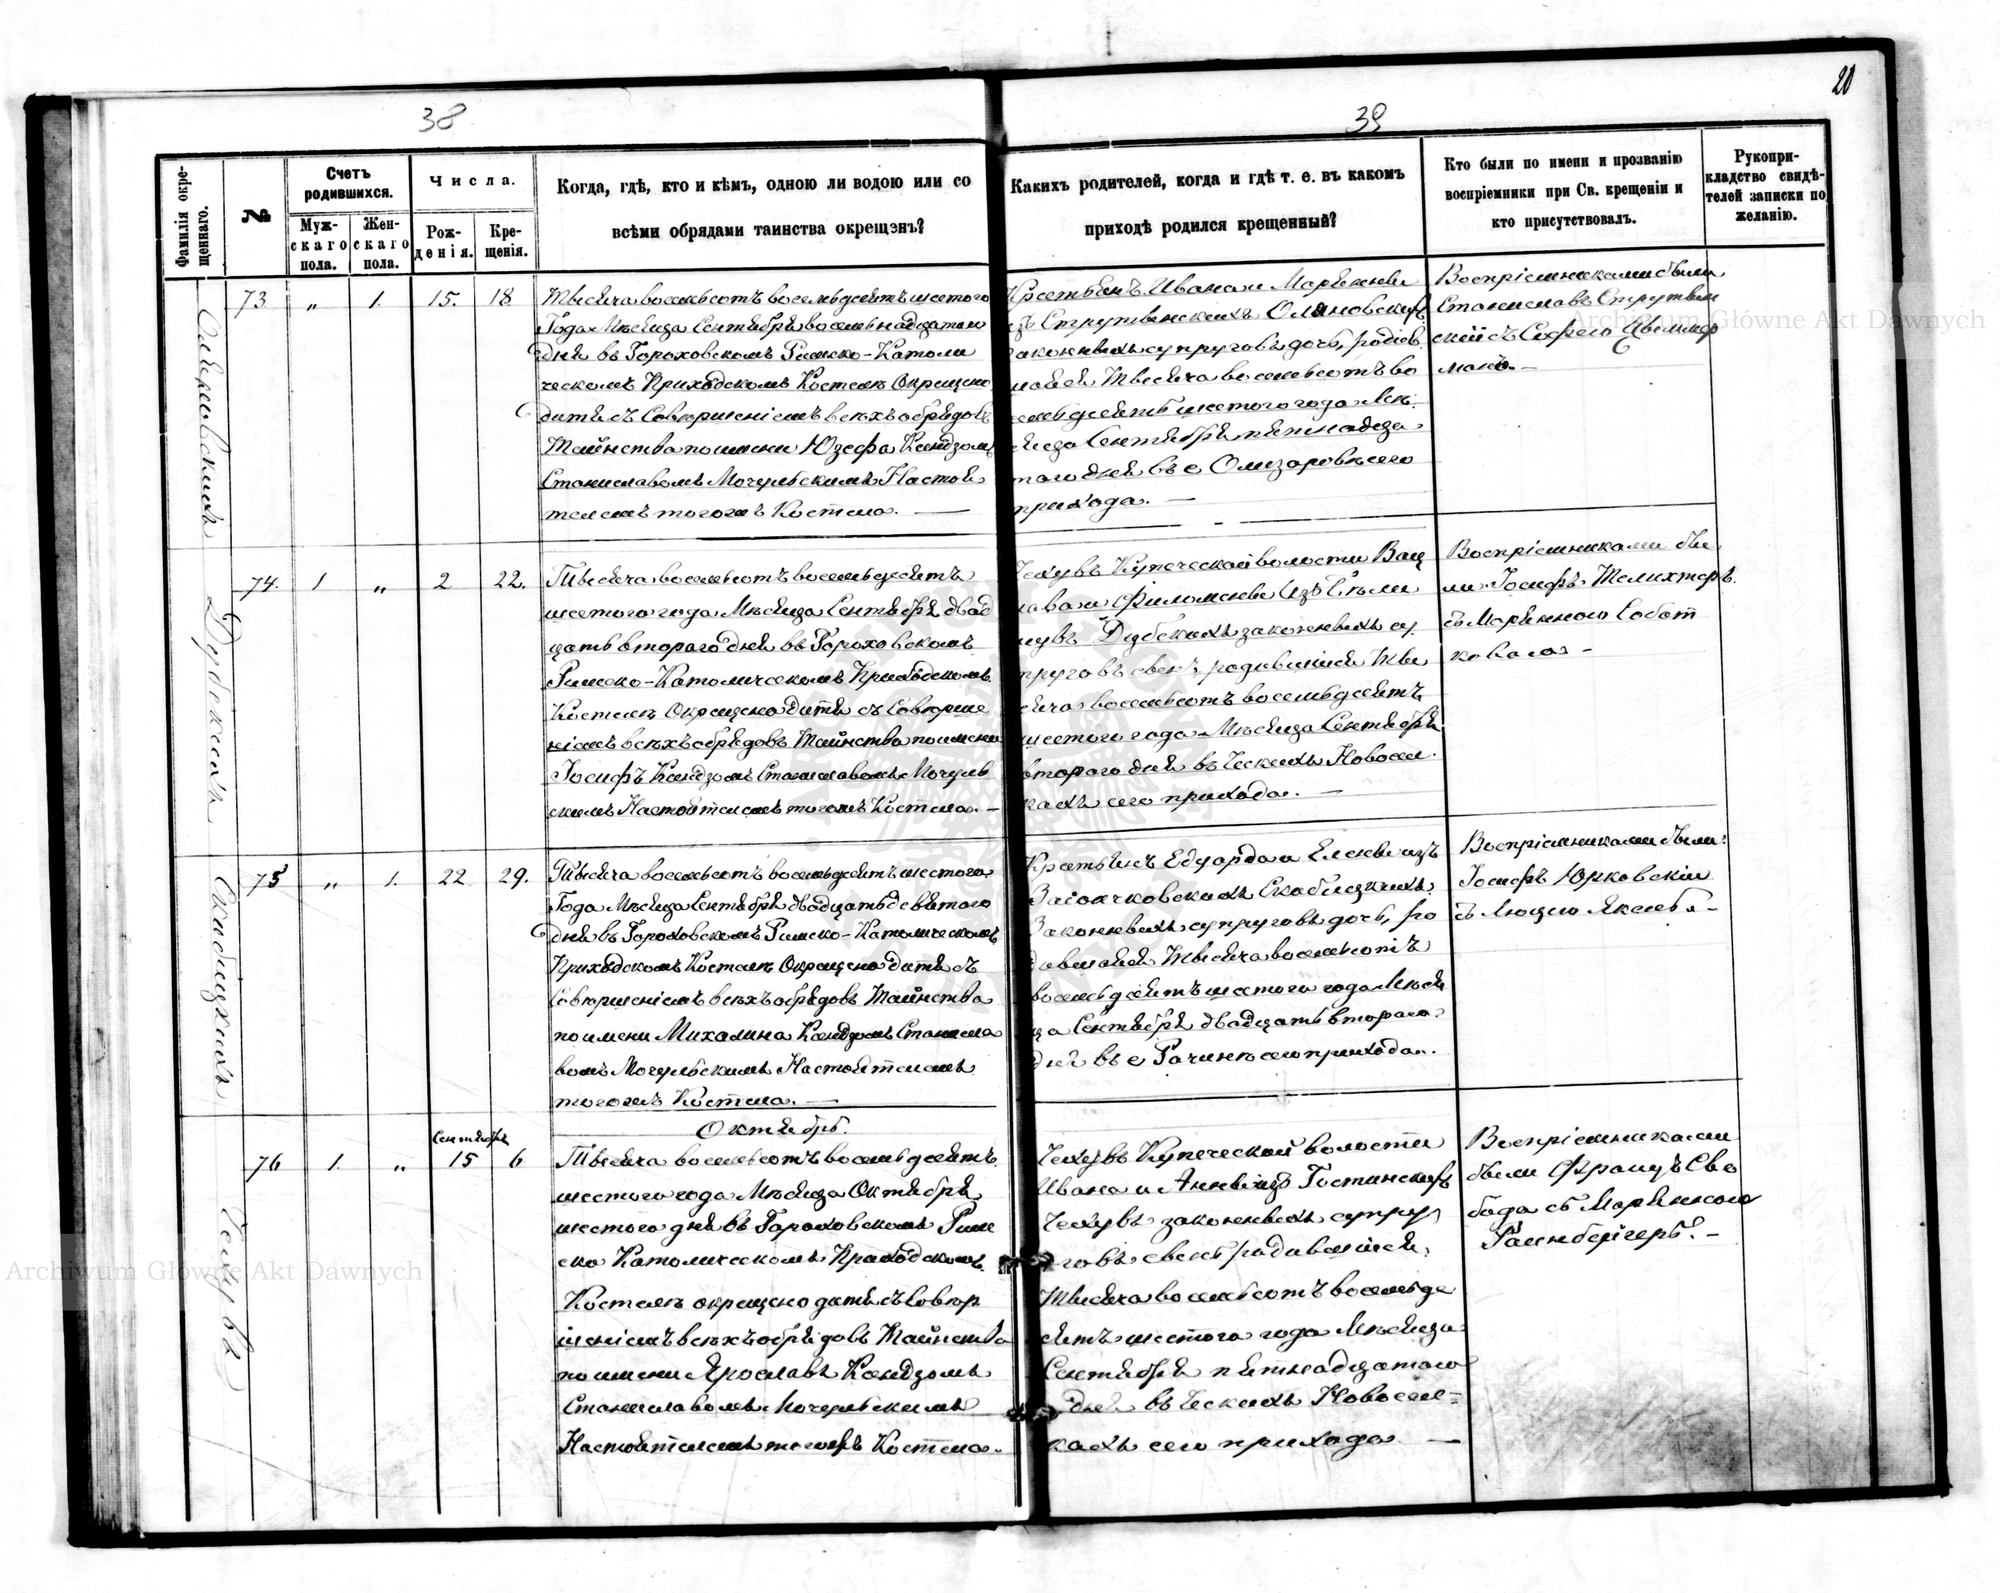 20
38
39
Фамилія окрещеннаго.
№
Счетъ родившихся.
Мужскаго пола.
Женскаго пола.
Числа.
Рожденія.
Крещенія.
Когда, гдѣ, кто и кѣмъ, одною ли водою или со
всѣми обрядами таинства окрещэнъ?
Какихъ родителей, когда и гдѣ т. е. въ какомъ
приходѣ родился крещенный?
Кто были по имени и прозванію
воспріемники при Св. крещеніи и
кто присутствовалъ.
Рукопри-
кладство свидѣ-
телей записки по
желанію.
73 „ 1. 15. 18
Тысяча восемьсотъ восемьдесятъ шестого
Года Мѣсяца Сентября восемнадцатаго
дня въ Гороховскомъ Римско-Католи
ческомъ Приходскомъ Костелѣ Окрещено
дитя съ Совершеніемъ всѣхъ обрядовъ
Таинства по имени Юзефа Ксендзомъ
Станиславомъ Мочульскимъ Настоя
телемъ тогожъ Костела. —
Крестьянъ Ивана и Маріанны
изъ Струтинскихъ
законныхъ супруговъ дочь, родив
шаяся Тысяча восемьсотъ во
семьдесятъ шестого года Мѣ
сяца Сентября пятнадца
того дня въ с Олизаровѣ сего
прихода. —
Воспріемниками были
Станиславъ Струтын
скій съ Софею Цымер
манъ. —
74. 1 „ 2 22.
Тысяча восемьсотъ восемьдесятъ
шестого года Мѣсяца Сентября двад
цать второго дня въ Гороховскомъ
Римско-Католическомъ Приходскомъ
Костелѣ Окрещено дитя съ Соверше
ніемъ всѣхъ обрядовъ Таинства по имени
Іосифъ Ксендзомъ Станиславомъ Мочуль
скимъ Настоятелемъ тогожъ Костела. —
Чеховъ Купеческой волости Вац
лава и Филомены изъ
Дубскихъ законныхъ су
пруговъ сынъ, родившійся Ты
сяча восемьсотъ восемьдесятъ
шестого года Мѣсяца Сентября
второго дня въ Ческихъ Новосел
кахъ сего прихода. —
Воспріемниками бы
ли Іосифъ Мелихтеръ
съ Маріянною Собот
ковою —
Дубскихъ
75 „ 1. 22 29.
Тысяча восемьсотъ восемьдесятъ шестого
Года Мѣсяца Сентября двадцать девятого
дня въ Гороховскомъ Римско-Католическомъ
Приходскомъ Костелѣ Окрещено дитя съ
Совершеніемъ всѣхъ обрядовъ Таинства
по имени Михалина Ксендзомъ Станисла
вомъ Мочульскимъ Настоятелемъ
тогожъ Костела. —
Крестьянъ Едуарда и Елены изъ
Заіончковскихъ Скабицкихъ
Законныхъ супруговъ дочь, ро
дившаяся Тысяча восемьсотъ
восемьдесятъ шестого года Мѣся
ца Сентября двадцать второго
дня въ с Рачинѣ сего прихода.
Воспріемниками были:
Іосифъ Юрковскій
съ Люцію —
Скабицкихъ
Октябрь.
Сентября
76 1. „ 15 6
Тысяча восемьсотъ восемьдесятъ
шестого года Мѣсяца Октября
шестого дня въ Гороховскомъ Рим
ско Католическомъ Приходскомъ
Костелѣ окрещено дитя съ Совер
шеніемъ всѣхъ обрядовъ Таинства
по имени Ярославъ Ксендзомъ
Станиславомъ Мочульскимъ
Настоятелемъ тогожъ Костела.
Чеховъ Купеческой волости
Ивана и Анны изъ Гостинскихъ
законныхъ супру
говъ сынъ родившійся,
Тысяча восемьсотъ восемьде
сятъ шестого года Мѣсяца
Сентября пятнадцатого
дня въ Ческихъ Новосел-
кахъ сего прихода —
Воспріемниками
были Францъ Сво
бода съ Маріянною
Archiwum Główne Akt Dawnych
Archiwum Główne Akt Dawnych